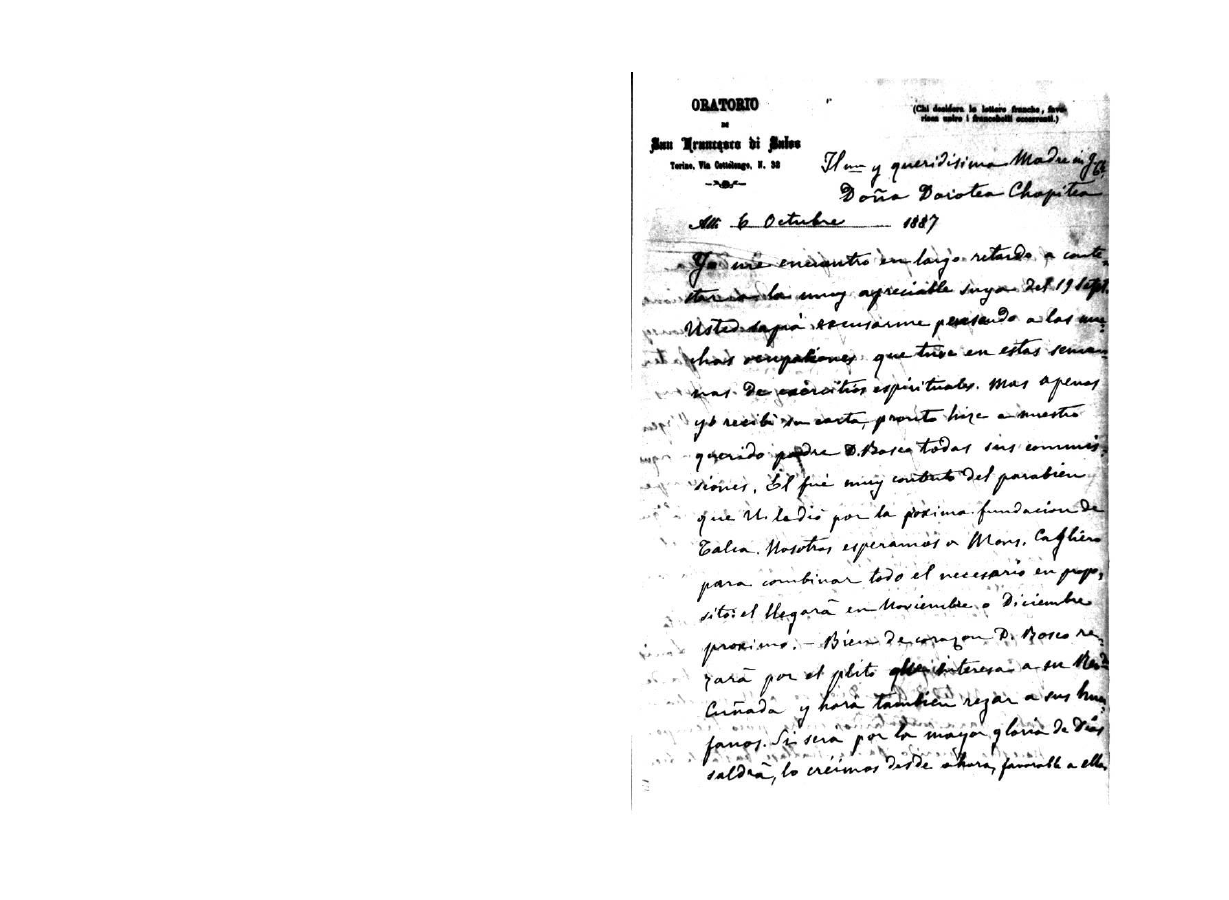 ORATORIO
DI
San Francesco di Sales
Torino, Via Cottolengo, N. 32
(Chi desidera le lettere franche, favo-
risca unire i francobolli occorrenti.)
Ilma y queridisima Madre in
Doña Dorotea Chopitea
Alli 6 Octubre 1887
Yo me encuentro en largo retardo a conte-
star a la muy apreciable suya del 19 Sept.
Usted saprá excusarme pensando a las mu-
chas ocupaciones que tuve en estas sema-
nas de exercitios espirituales. Mas apenas
yo recibi su carta, pronto hize a nuestro
querido padre D. Bosco todas sus commis-
siones. El fué muy contento del parabien
que U. le dió por la proxima fundacion de
Talca. Nosotros esperamos a Mons. Cagliero
para combinar todo el necesario en propo-
sito: el llegará en Noviembre o Diciembre
proximo. - Bien de corazon D. Bosco re-
zará por el plito que interesa a su
Cuñada y hará tambien rezar a sus huer-
fanos. Si sera por la mayor gloria de Dios
saldrá, lo creimos desde ahora, favorable a ella